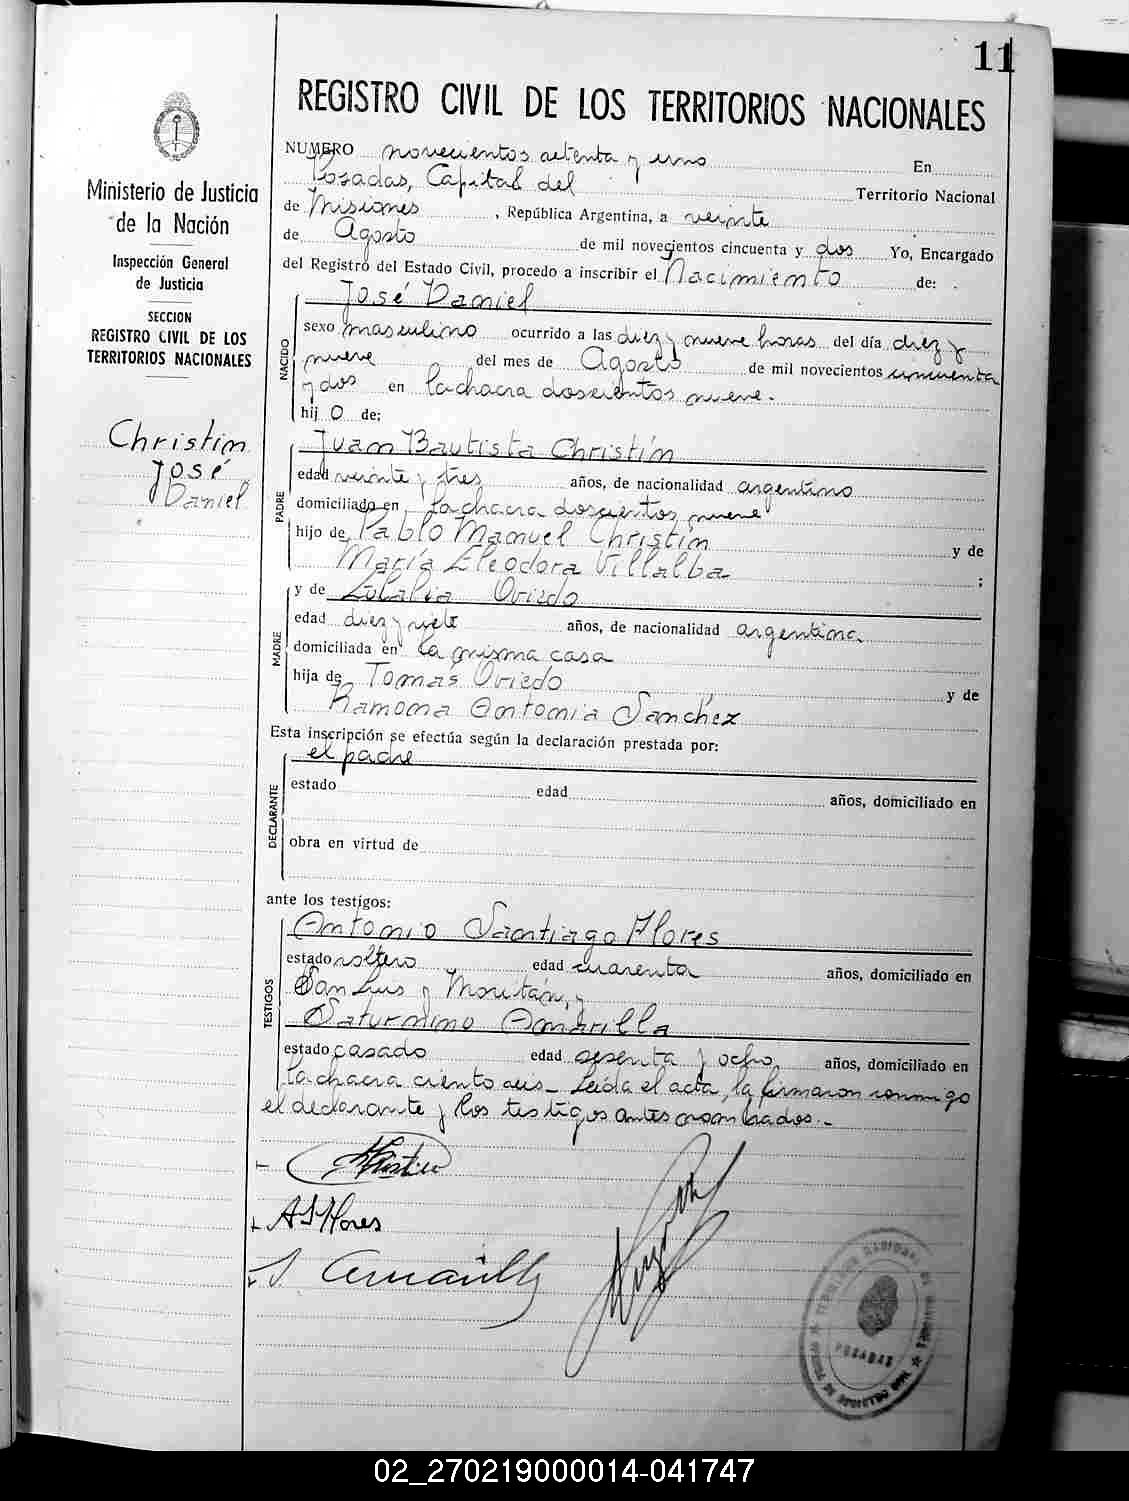 11
REGISTRO CIVIL DE LOS TERRITORIOS NACIONALES
Ministerio de Justicia
de la Nación
Inspección General
de Justicia
SECCION
REGISTRO CIVIL DE LOS
TERRITORIOS NACIONALES
Christin
José
Daniel
NUMERO novecientos setenta y uno En
Posadas, Capital del Territorio Nacional
de Misiones, República Argentina, a veinte
de Agosto de mil novecientos cincuenta y dos Yo, Encargado
del Registro del Estado Civil, procedo a inscribir el Nacimiento de:
José Daniel
NACIDO
sexo masculino ocurrido a las diez y nueve horas del día diez y
nueve del mes de Agosto de mil novecientos cincuenta
y dos en la chacra doscientos nueve.
hij o de:
Juan Bautista Christín
PADRE
edad veinte y tres años, de nacionalidad argentino
domiciliado en la chacra doscientos nueve
hijo de Pablo Manuel Christín y de
María Eleodora Villalba ;
y de Eulalia Oviedo
MADRE
edad diez y siete años, de nacionalidad argentina
domiciliada en la misma casa
hija de Tomás Oviedo y de
Ramona Antonia Sanchez
Esta inscripción se efectúa según la declaración prestada por:
el padre
DECLARANTE
estado edad años, domiciliado en
obra en virtud de
ante los testigos:
Antonio Santiago Flores
TESTIGOS
estado soltero edad cuarenta años, domiciliado en
San Luis y Moritán, y
Saturnino Amarilla
estado casado edad sesenta y ocho años, domiciliado en
la chacra ciento seis._ Leída el acta, la firmaron conmigo
el declarante y los testigos antes nombrados._
A S Flores
S. Amarilla
POSADAS
02_270219000014-041747